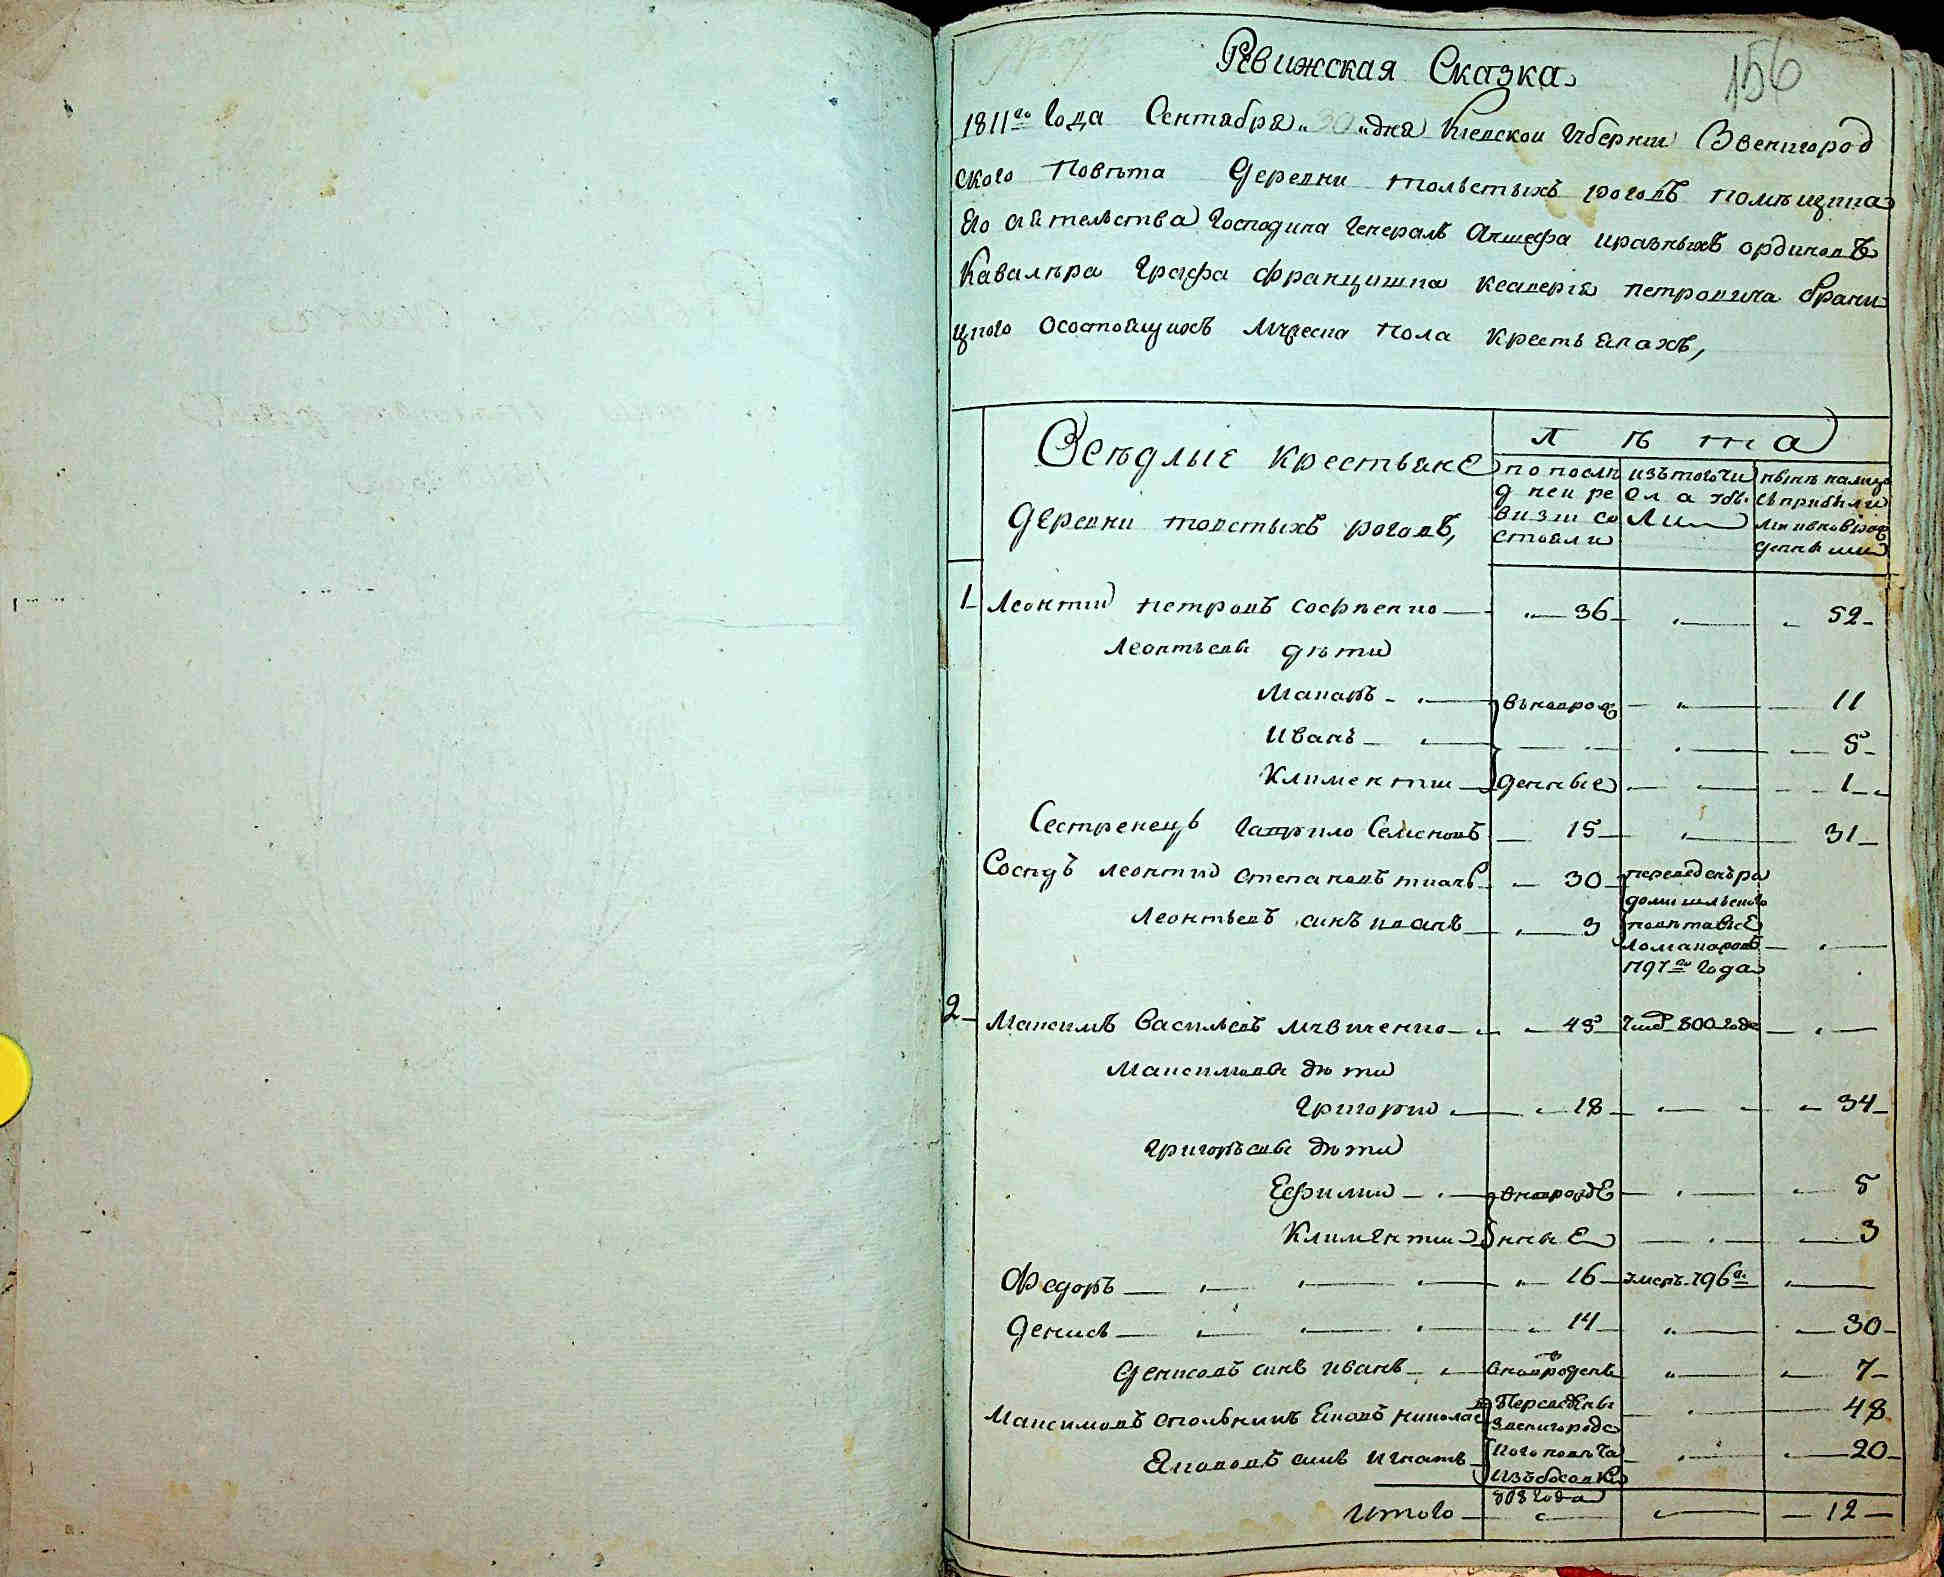 156
Ревижская Сказка
1811го Года Сентабря 30 дня Киевской Губернии Звенигород
ского Повета Деревни толстыхъ роговъ помещика
Его сиятельства Господина Генералъ Аншефа иразныхъ ординовъ
Кавалера Графа францишка ксаверія петровича брани
цкого Осостоящихъ Мужеска пола крестьянахъ,
Оседлые крестьяне
деревни толстыхъ роговъ,
Л ѣ т а
по после
дней ре
визіи со
стояли
изътого чи
сла выб.
ли
ныне налицо
съприбыли
ми иновророж
денными
1 Леонтий петровъ софѣенко 36 52
Леонтьевы дѣти
Макаръ вьновророж 11
Иванъ 5
Климентии денные 1
Сестренецъ гаврило Семеновъ 15 31
Соседъ леонтий степановъ ткачъ 30 переведенъ ра
домышльского
Леонтьевъ синъ иванъ 3 повета вьс
797го года
2 Максимъ Васильевъ 45 умеръ 800 года
Максимовы дѣти
Григорий 18 34
Григорьевы дѣти
Ефимий вновророжде 5
Климентии нные 3
Федоръ 16 умеръ 796го
Денисъ 14 30
Денисовъ синъ иванъ вновророденъ 7
Максимовъ Яковъ николаевъ Переведены 48
звенигородс
Якововъ синъ игнатъ кого повета 20
изъ
808 года
итого 12